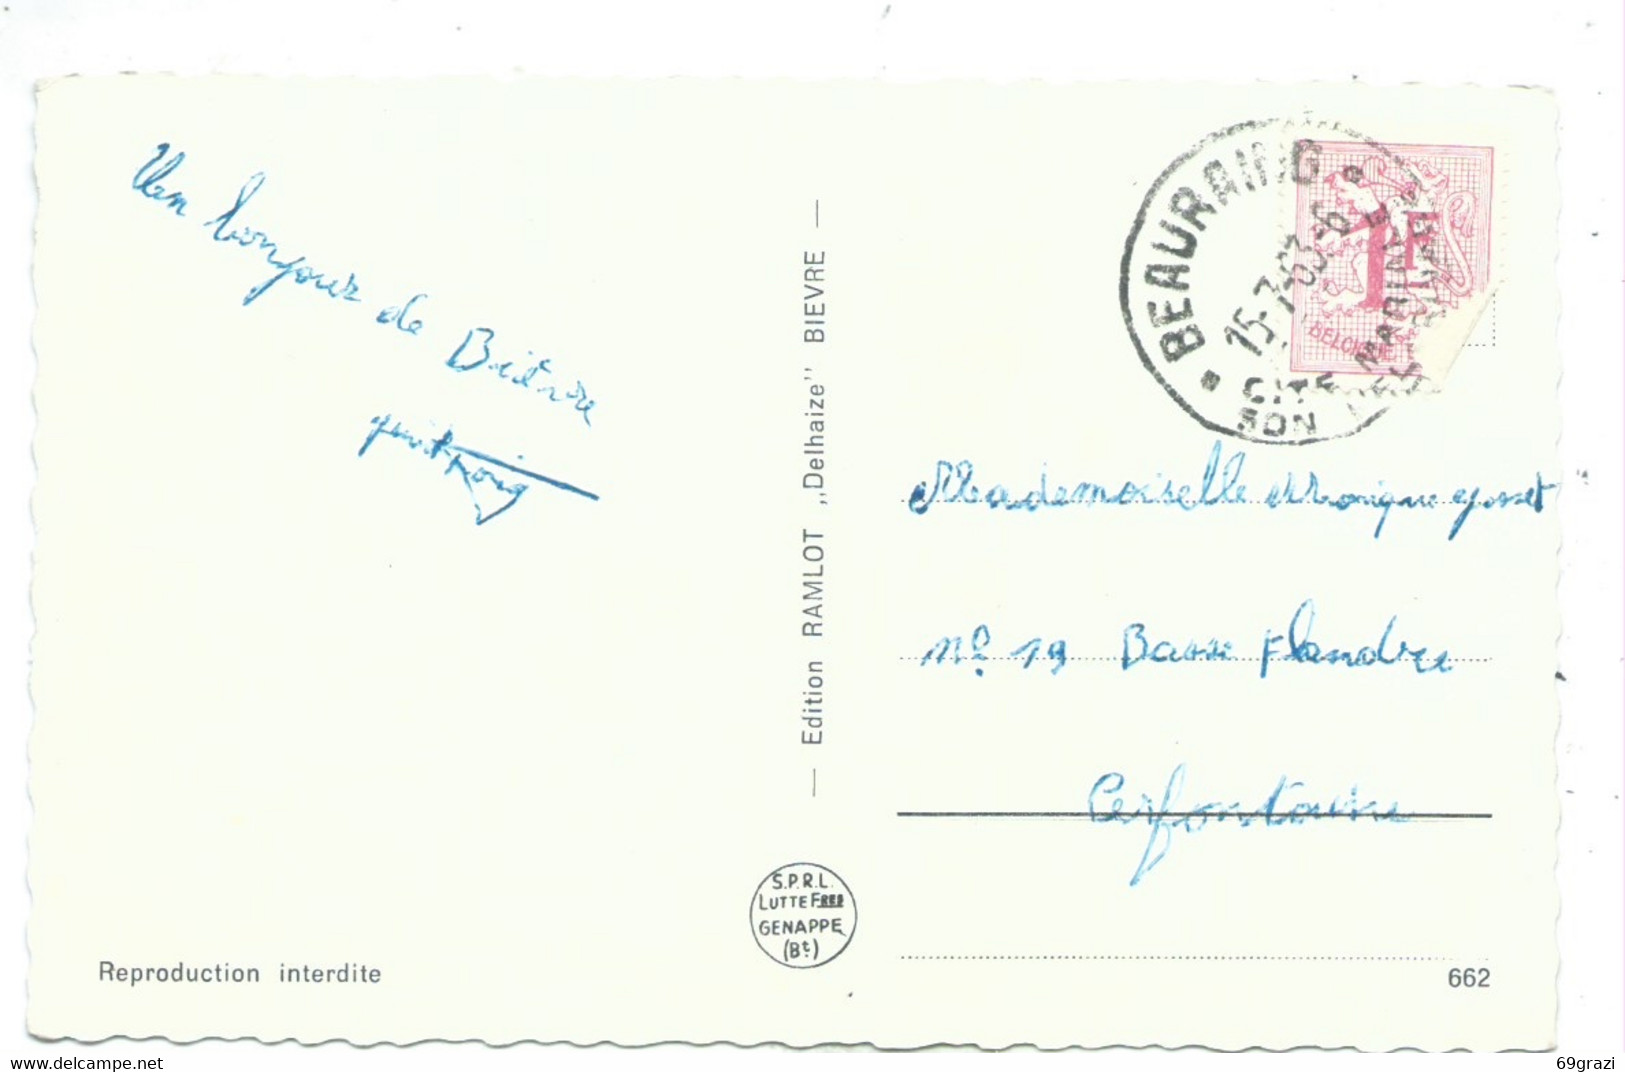 Un bonjour de Bièvre
BEAURAING
15-7-63
CITE MARIALE
SON
1F
BELGIQUE
Mademoiselle
N° 19 Basse Flandre
Cerfontaine
— Edition RAMLOT „Delhaize" BIEVRE —
S.P.R.L.
LUTTE FRER
GENAPPE
(Bt)
Reproduction interdite
662
www.delcampe.net
69grazi